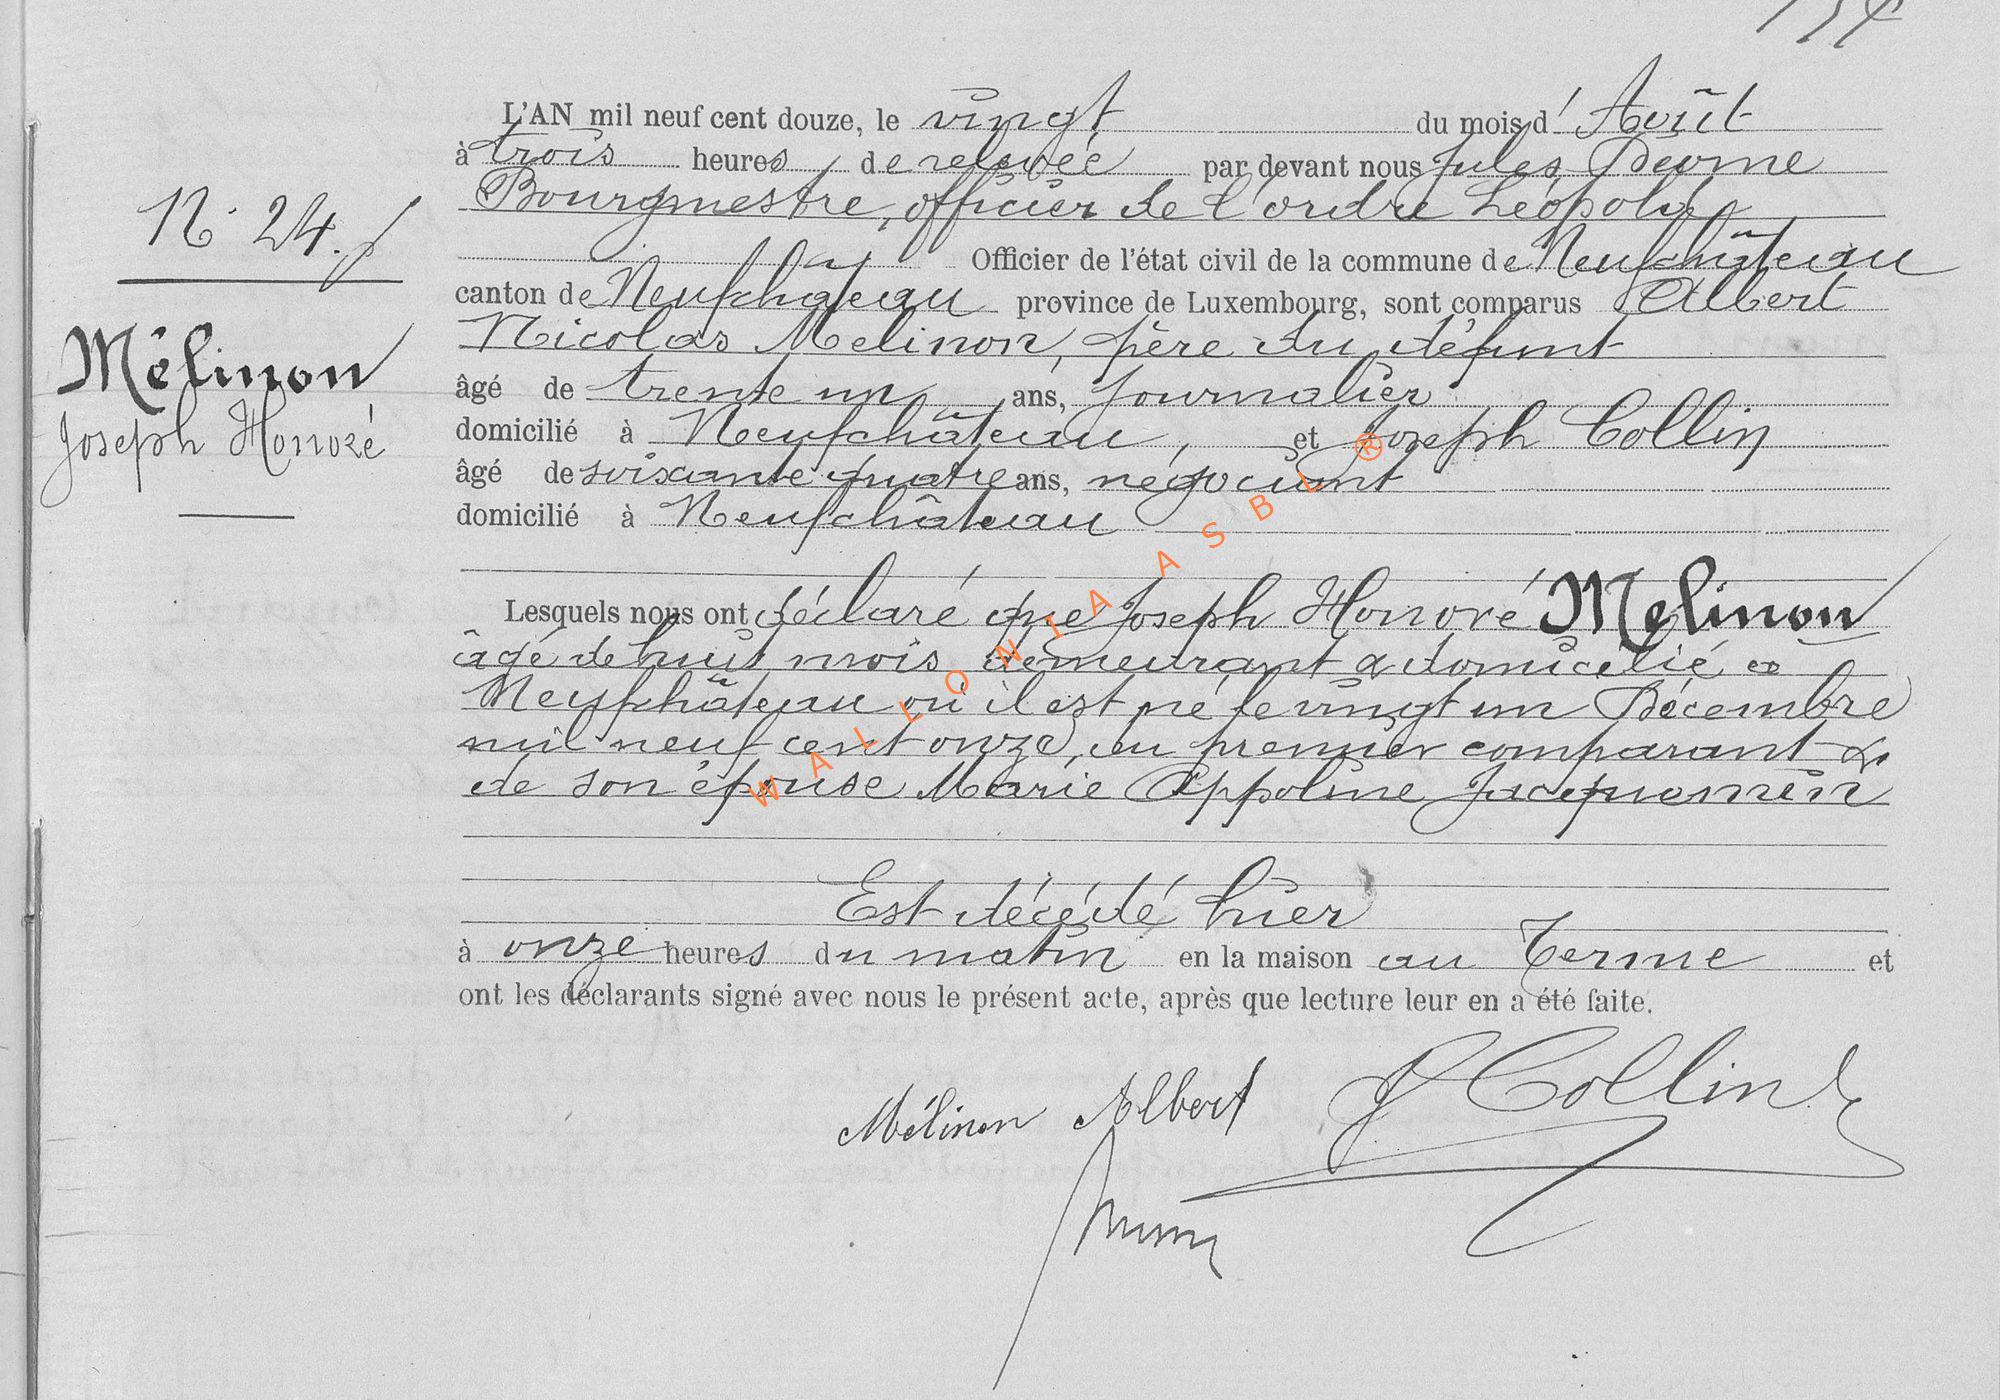 L'AN mil neuf cent douze, le vingt du mois d'Août
à trois heures de relevée par devant nous Jules
Bourgmestre, officier de l'ordre Léopold
Officier de l'état civil de la commune de Neufchâteau
canton de Neufchâteau province de Luxembourg, sont comparus Albert
Nicolas Mélinon, père du défunt
âgé de trente un ans, journalier
domicilié à Neufchâteau, et Joseph Collin
âgé de soixante quatre ans, négociant
domicilié à Neufchâteau
N° 24.
Mélinon
Joseph Honoré
Lesquels nous ont déclaré que Joseph Honoré Mélinon
âgé de huit mois demeurant & domicilié à
Neufchâteau où il est né le vingt un Décembre
mil neuf cent onze, du premier comparant &
de son épouse Marie Appoline Jacquemin
Est décédé hier
à onze heures du matin en la maison au Terme et
ont les déclarants signé avec nous le présent acte, après que lecture leur en a été faite.
Mélinon Albert J Collin
WALLONIA ASBL ®